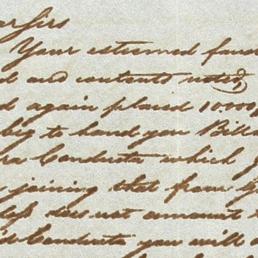 Sirs
Your esteemed favor
and contents noted
again placed 10000
beg to hand you Bills
Conducta which
joining that from
less does not amount
Conducta you will